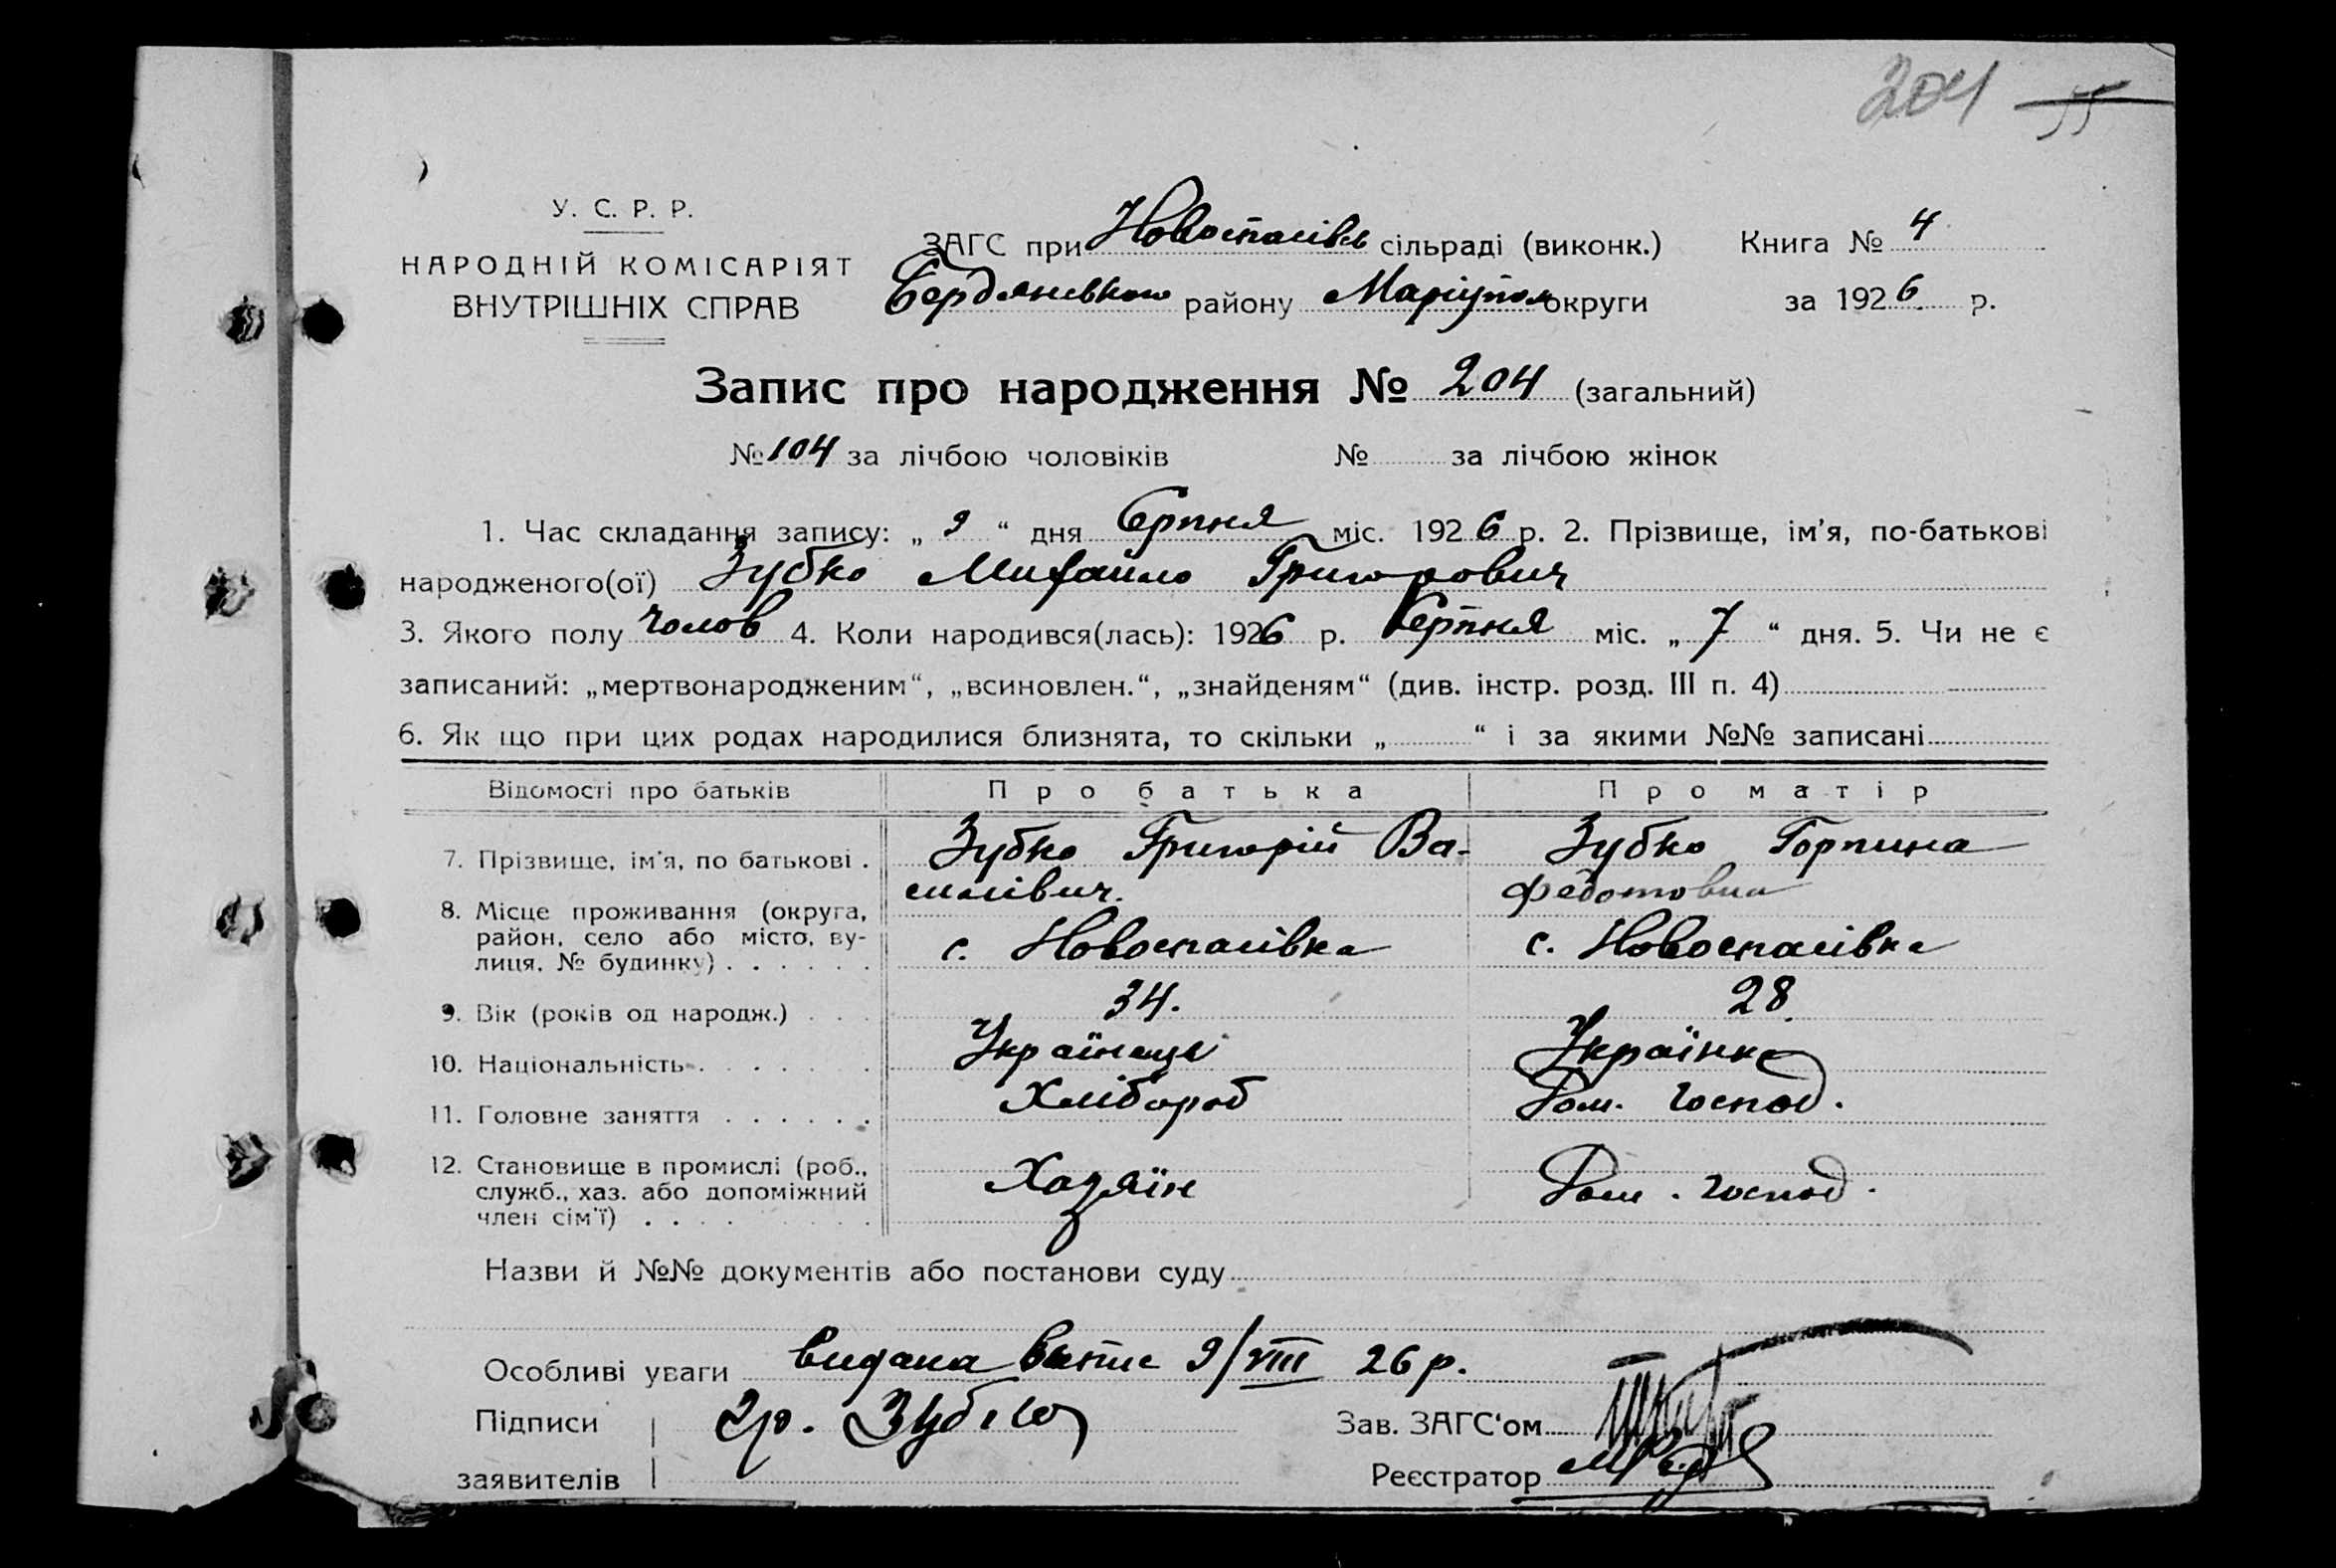 204 55
У. С. Р. Р.
НАРОДНІЙ КОМІСАРІЯТ
ВНУТРІШНІХ СПРАВ
ЗАГС при Новоспасівс сільраді (виконк.) Книга № 4
Бердянського району Маріупол округи за 1926 р.
Запис про народження № 204 (загальний)
№ 104 за лічбою чоловіків № за лічбою жінок
1. Час складання запису: „ 9 “ дня Серпня міс. 1926 р. 2. Прізвище, ім’я, по-батькові
народженого(ої) Зубко Михайло Григорович
3. Якого полу чолов 4. Коли народився(лась): 1926 р. Серпня міс. „ 7 “ дня. 5. Чи не є
записаний: „мертвонародженим“, „всиновлен.“, „знайденям“ (див. інстр. розд. III п. 4)
6. Як що при цих родах народилися близнята, то скільки „ “ і за якими №№ записані
Відомості про батьків Про батька Про матір
7. Прізвище, ім’я, по батькові . Зубко Григорій Ва-
силівич. Зубко Горпина
Федотовна
8. Місце проживання (округа,
район, село або місто, ву-
лиця, № будинку) . . . . . . с. Новоспасівка с. Новоспасівка
9. Вік (років од народж.) . . . 34. 28.
10. Національність . . . . . . Українець Українка
11. Головне заняття . . . . . . Хлібороб Дом. господ.
12. Становище в промислі (роб.,
служб., хаз. або допоміжний
член сім’ї) . . . . Хазяїн Дом. господ.
Назви й №№ документів або постанови суду
Особливі уваги видана випис 9/VIII 26 р.
Підписи гр. Зубко Зав. ЗАГС‘ом
заявителів Реєстратор